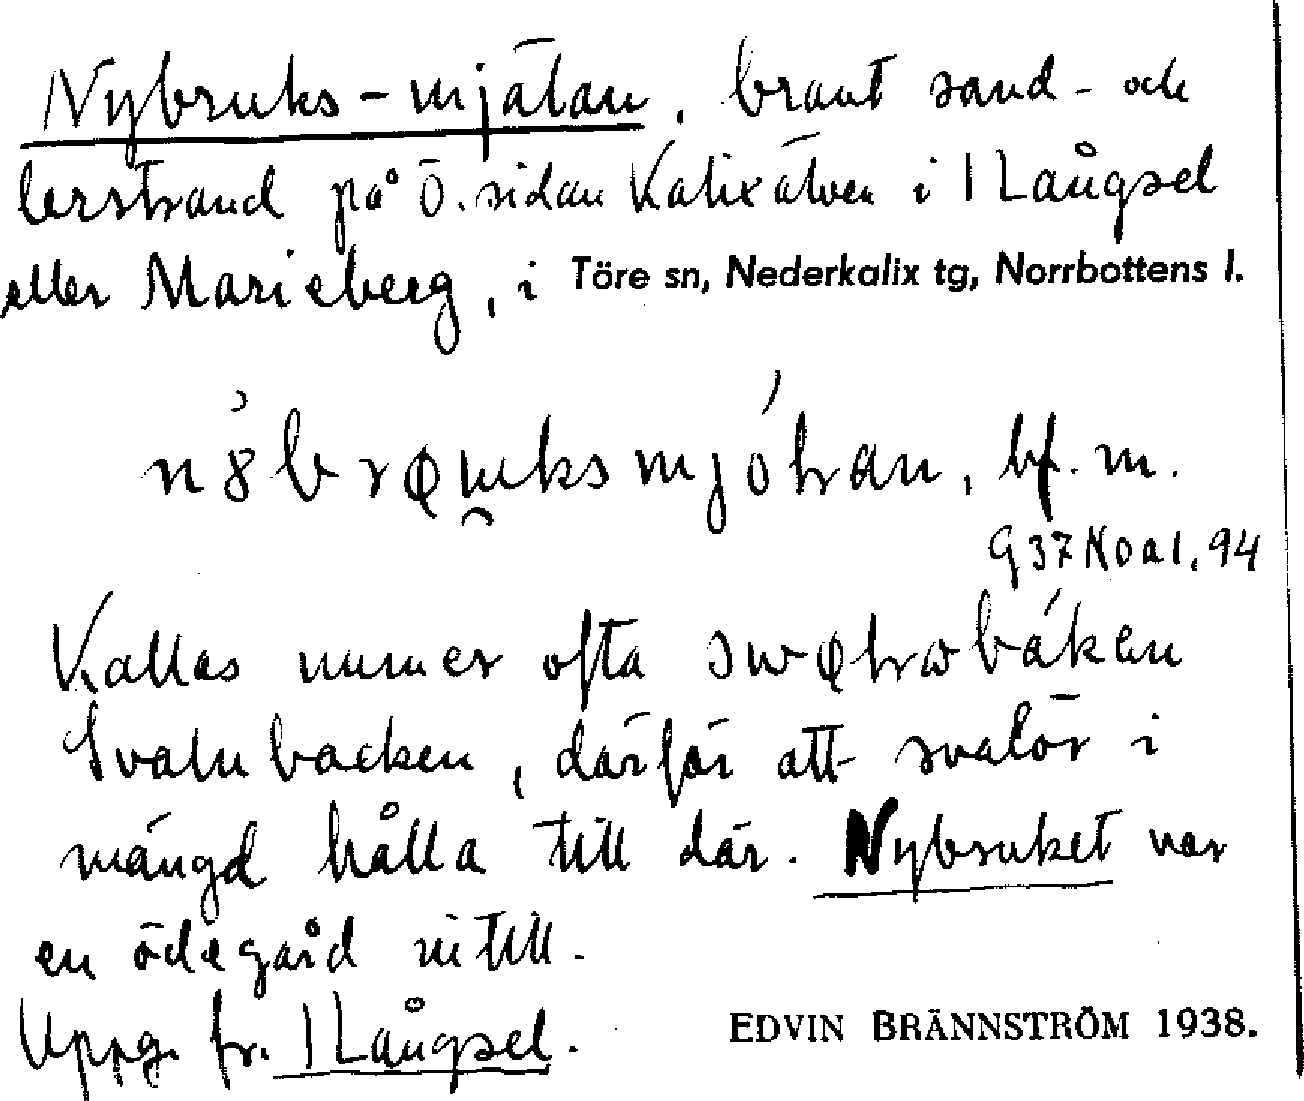 Nybruks-mjälan, brant sand- och
lerstrand på Ö. sidan Kalixälven i 1 Långsel
eller Marieberg, i Töre sn, Nederkalix tg, Norrbottens l.
bf. m.
G 37 N o a 1. 94
Kallas numer ofta
Svalubacken, därför att svalor i
mängd hålla till där. Nybruket var
en ödegård intill.
Uppg. fr. 1 Långsel.
EDVIN BRÄNNSTRÖM 1938.